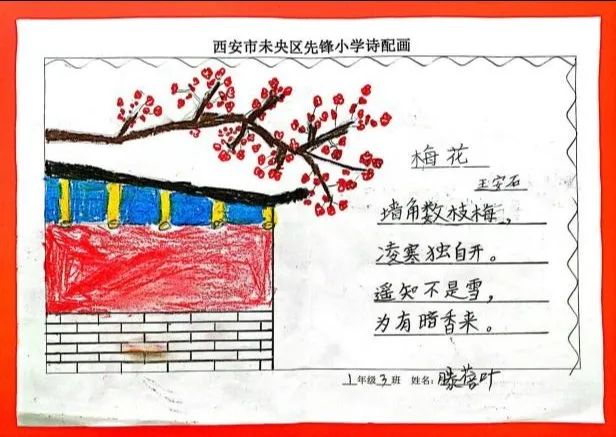 西安市未央区先锋小学诗配画
梅花
王安石
墙角数枝梅，
凌寒独自开。
遥知不是雪，
为有暗香来。
1年级3班 姓名：滕落叶